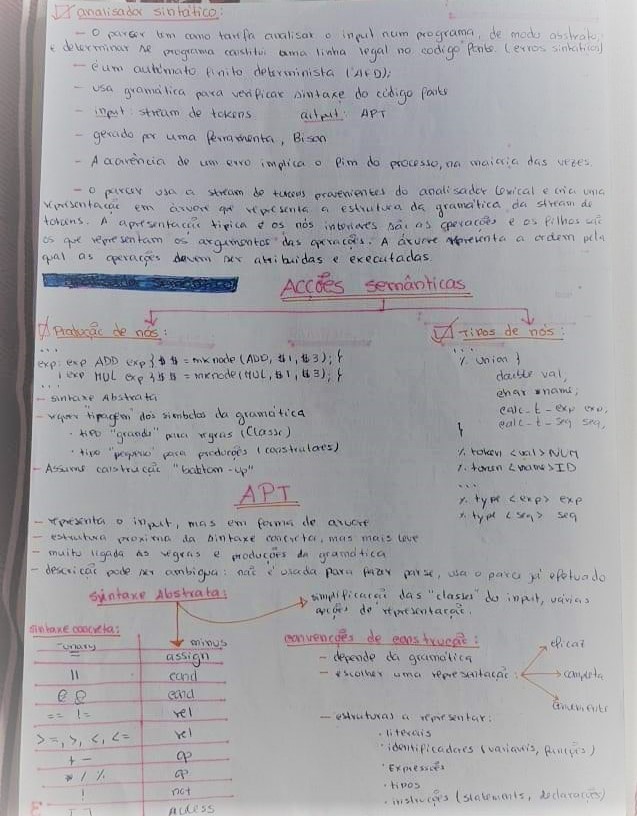 analisador sintático:
- O parser tem como tarefa analisar o input num programa, de modo abstrato,
e determinar se programa constitui uma linha legal no código fonte. (erros sintáticos)
- é um autómato finito determinista (AFD);
- usa gramática para verificar sintaxe do código fonte
- input: stream de tokens output: APT
- gerado por uma ferramenta, Bison
- A ocorrência de um erro implica o fim do processo, na maioria das vezes.
- O parser usa a stream de tokens provenientes do analisador lexical e cria uma
representação em árvore que representa a estrutura da gramática da stream de
tokens. A apresentação típica é os nós interiores são as operações e os filhos são
os que representam os argumentos das operações. A árvore representa a ordem pela
qual as operações devem ser atribuídas e executadas.
Acções semânticas
Produção de nós:
...
exp: exp ADD exp { $$ = mknode (ADD, $1, $3); }
| exp MUL exp { $$ = mknode (MUL, $1, $3); }
- sintaxe Abstrata
- requer "tipagem" dos símbolos da gramática
· tipo "grande" para regras (classe)
· tipo "pequeno" para produções (construtores)
- Assume construcção "bottom-up"
Tipos de nós:
% union {
double val,
char *name;
calc_t_exp exp,
calc_t_seq seq,
}
% token <val> NUM
% token <name> ID
...
% type <exp> exp
% type <seq> seq
APT
- representa o input, mas em forma de arvore
- estrutura proxima da sintaxe concreta, mas mais leve
- muito ligada às regras e produções da gramática
- descrição pode ser ambígua: não é usada para fazer parse, usa o parse já efetuado
Sintaxe Abstrata:
simplificação das "classes" do input, várias
opções de representação.
sintaxe concreta:
- unary minus
= assign
|| cond
@ @ cond
== != rel
>=, >, <, <= rel
+ - op
* / % op
! not
[ ] Access
convenções de construção:
- depende da gramática
- escolher uma representação:
eficaz
completa
- estruturas a representar:
· literais
· identificadores (variaveis, funções)
· Expressões
· tipos
· instruções (statements, declarações)